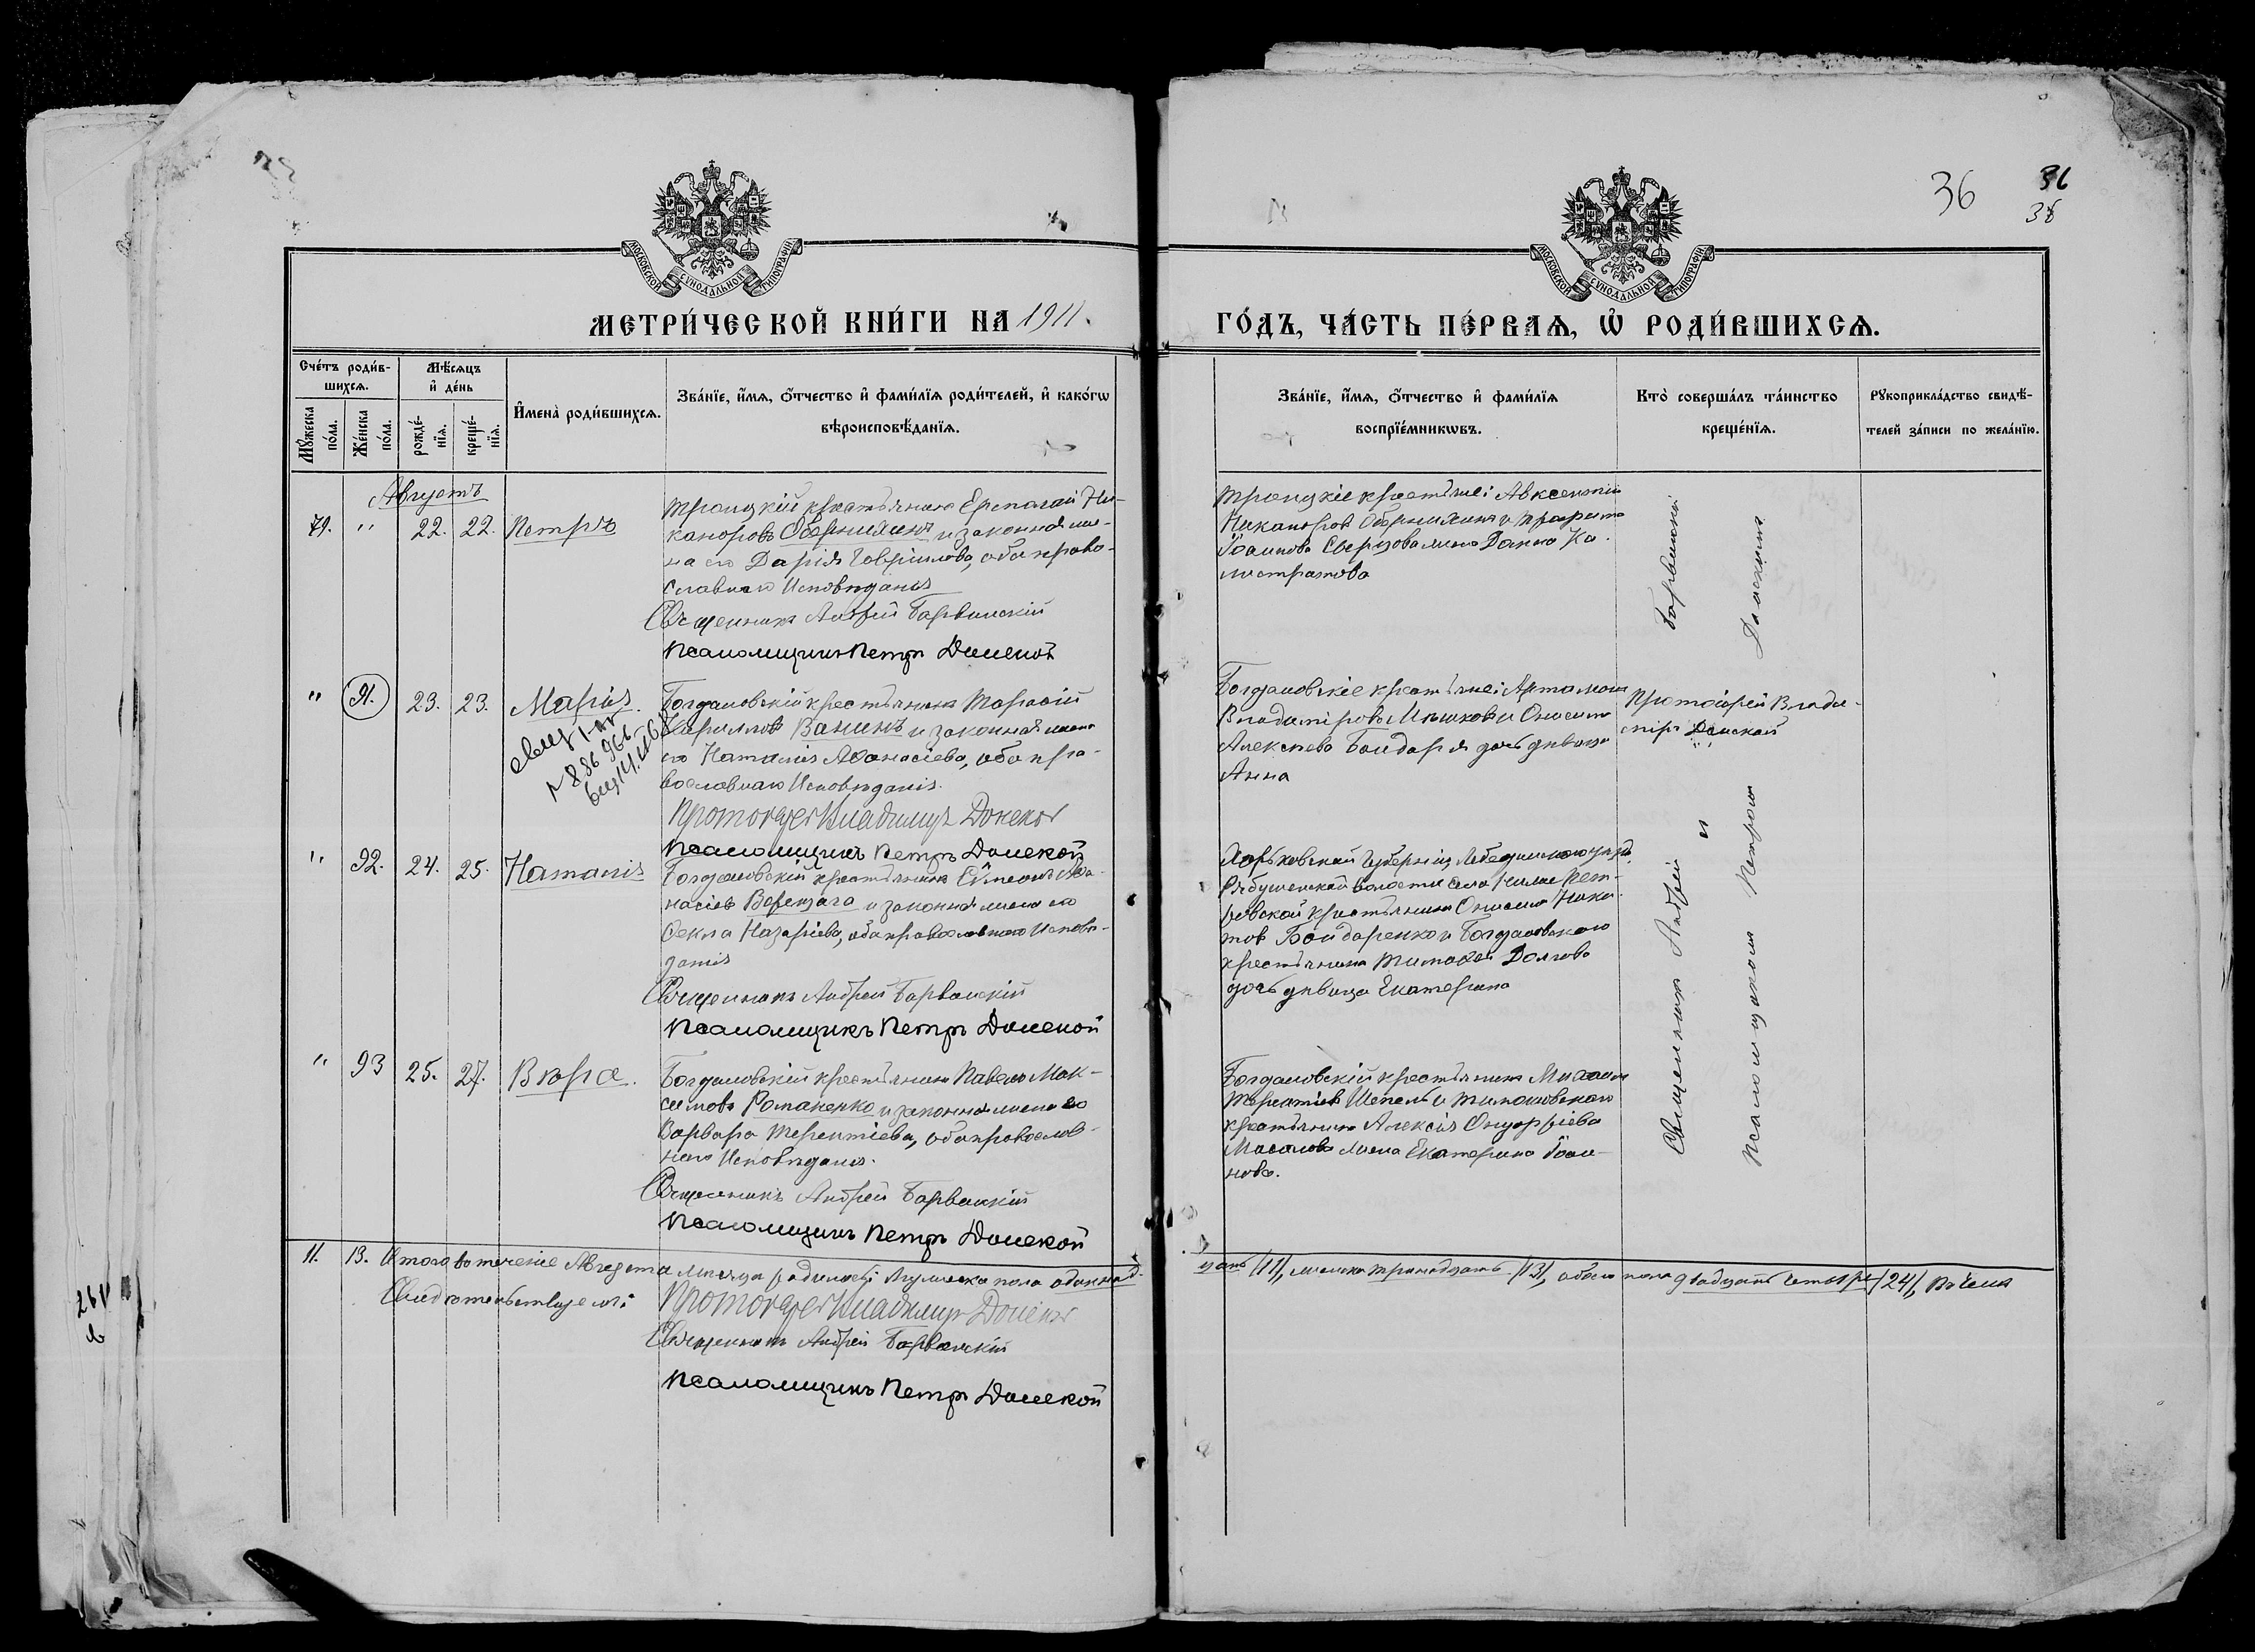 36 36
38
МОСКОВСКОЙ СѴНОДАЛЬНОЙ ТИПОГРАФІИ
МОСКОВСКОЙ СѴНОДАЛЬНОЙ ТИПОГРАФІИ
МЕТРИ́ЧЕСКОЙ КНИ́ГИ НА 1911.
ГО́ДЪ, ЧА́СТЬ ПЕ́РВАѦ, Ѡ҆ РОДИ́ВШИХСѦ.
Сче́тъ роди́в-
шихсѧ.
Мꙋ́жеска по́ла.
Же́нска по́ла.
Мѣ́сѧцъ
и҆ де́нь
рожде́-
нїѧ.
креще́-
нїѧ.
И҆мена̀ роди́вшихсѧ.
Зва́нїе, и҆́мѧ, ѻ҆́тчество и҆ фами́лїѧ роди́телей, и҆ како́гѡ
вѣроисповѣ́данїѧ.
Зва́нїе, и҆́мѧ, ѻ҆́тчество и҆ фами́лїѧ
воспрїе́мникѡвъ.
Кто̀ соверша́лъ та́инство
креще́нїѧ.
Рꙋкоприкла́дство свидѣ́-
телей за́писи по жела́нїю.
Августъ
79. " 22. 22. Петръ
Троицкій крестьянинъ Ермолай Ни-
каноровъ Оберниxинъ и законная же-
на его Дарія Гавріилова, оба право-
славнаго Исповѣданія
Священникъ Андрей Барвинскій
Псаломщикъ Петръ Донской
Троицкіе крестьяне: Авксентій
Никаноровъ
Іоаннова жена Ка-
листратова
" 91. 23. 23. Марія
Богдановскій крестьянинъ Тарасій
Кирилловъ Ванинъ и законная жена
его Наталія Аѳанасіева, оба пра-
вославнаго Исповѣданія.
Протоіерей Владимиръ Донской
Псаломщикъ Петръ Донской
Богдановскіе крестьяне: Артамонъ
Владиміровъ Мѣшковъ и Онисима
Алексѣева Бондаря дочь дѣвица
Анна
Протоіерей Влади-
миръ Донской
" 92. 24. 25. Наталія
Богдановскій крестьянинъ Сѵмеонъ Аѳа-
насіевъ Веренчага и законная жена его
Ѳекла Назаріева, оба православнаго Исповѣ-
данія
Священникъ Андрей Барвинскій
Псаломщикъ Петръ Донской
Харьковской губерніи, Лебединскаго уѣзда,
Рябушенской волости села
крестьянинъ Онисимъ Ники-
товъ Бондаренко и Богдановскаго
крестьянина Тимоѳея Долгова
дочь дѣвица Екатерина
" 93 25. 27. Вѣра.
Богдановскій крестьянинъ Павелъ Мак-
симовъ Романенко и законная жена его
Варвара Терентіева, оба православ-
наго Исповѣданія.
Священникъ Андрей Барвинскій
Псаломщикъ Петръ Донской
Богдановскій крестьянинъ Михаилъ
Терентіевъ Шепель и
крестьянина Алексія Онуфріева
Масалова жена Екатерина Іоан-
нова.
Священникъ Андрей Барвинскій
и
Псаломщикомъ Петромъ Донскимъ
11. 13. Итого въ теченіе Августа мѣсяца родилось: Мужеска пола одиннад-
цать /11/, женска тринадцать /13/, обоего пола двадцать четыре /24/, въ чемъ
Свидѣтельствуемъ: Протоіерей Владимиръ Донской
Священникъ Андрей Барвинскій
Псаломщикъ Петръ Донской